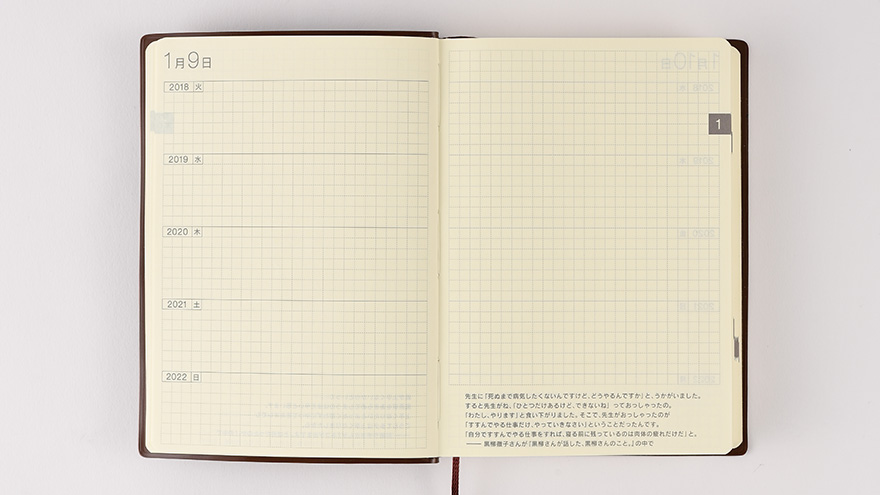 1月9日
2018 火
2019 水
2020 木
2021 土
2022 日
1
先生に「死ぬまで病気したくないんですけど、どうやるんですか」と、うかがいました。
すると先生がね、「ひとつだけあるけど、できないね」っておっしゃったの。
「わたし、やります」と食い下がりました。そこで、先生がおっしゃったのが
「すすんでやる仕事だけ、やっていきなさい」ということだったんです。
「自分ですすんでやる仕事をすれば、寝る前に残っているのは肉体の疲れだけだ」と。
——黒柳徹子さんが『黒柳さんが話した、黒柳さんのこと。』の中で